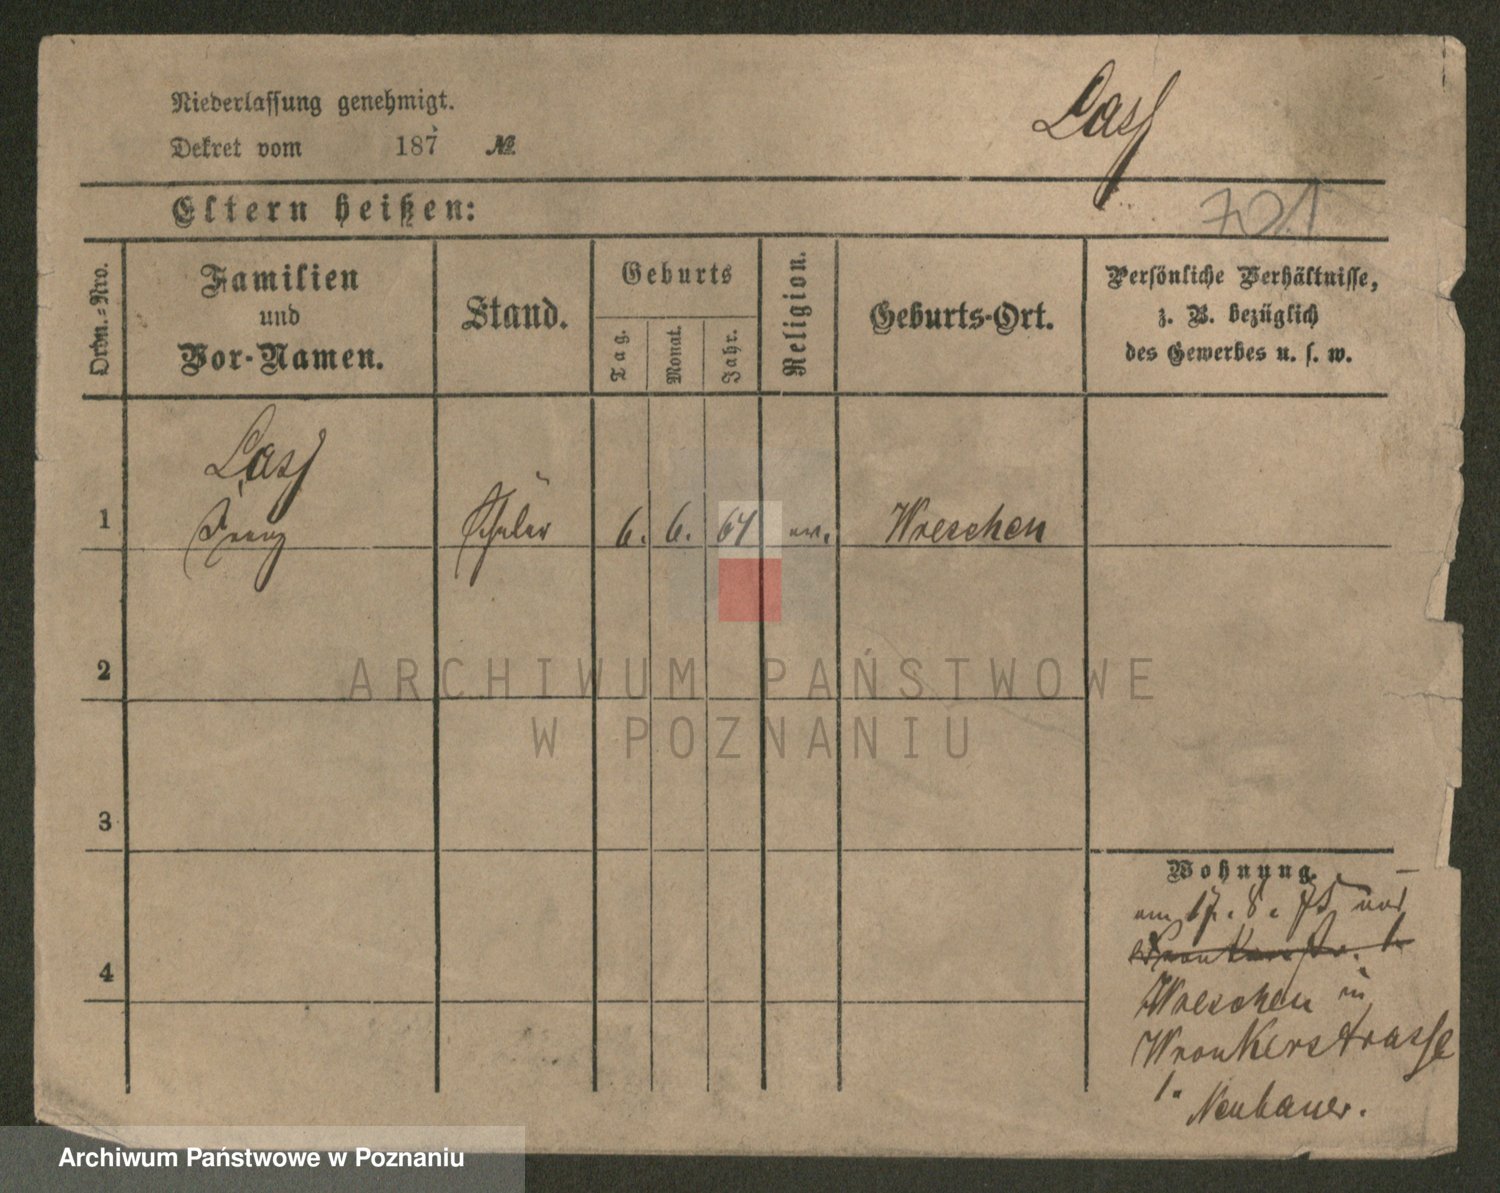 Niederlassung genehmigt.
Dekret vom 187 №
Lass
Eltern heißen:
701
Ordn.-Nro.
Familien
und
Vor-Namen.
Stand.
Geburts
Tag.
Monat.
Jahr.
Religion.
Geburts-Ort.
Persönliche Verhältnisse,
z. B. bezüglich
des Gewerbes u. s. w.
Lass
1 Franz Schüler 6. 6. 64 ev. Wreschen
2
3
4
Wohnung.
am 17. 8. 75 aus
Wronkerstr. 1
Wreschen in
Wronkerstrasse
1. Neubauer.
ARCHIWUM PAŃSTWOWE
W POZNANIU
Archiwum Państwowe w Poznaniu